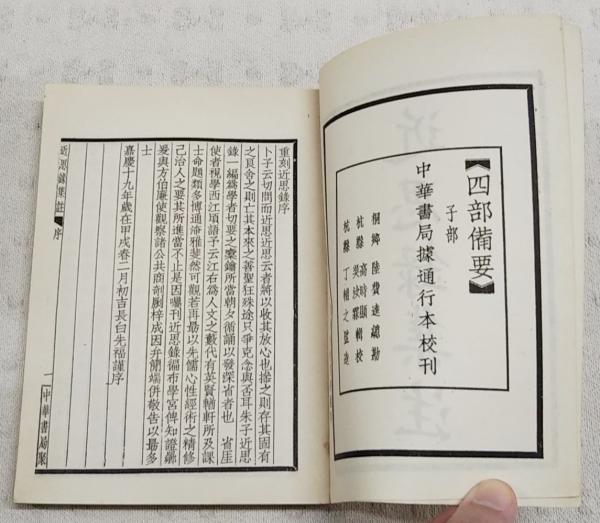 《四部備要》
子部
中華書局據通行本校刊
桐鄉 陸費逵總勘
杭縣 高時顯 吳汝霖 輯校
杭縣 丁輔之監造
重刻近思錄序
卜子云切問而近思近思云者將以收其放心也操之則存其固有
之良舍之則亡其本來之善聖狂殊途只爭克念與否耳朱子近思
錄一編爲學者切要之橐鑰所當朝夕循誦以發深省者也 省厓
使者視學西江頃語予云江右爲人文之藪代有英賢輶軒所及課
士命題類多博通淹雅斐然可觀若再勗以先儒心性經術之精修
己治人之要其所進當不止是因囑刊近思錄徧布學宮俾知證嚮
爰與方伯廉使觀察諸公共商剞劂梓成因弁簡端併敬告以最多
士
嘉慶十九年歲在甲戌春二月初吉長白先福謹序
近思錄集註 序
一 中華書局聚